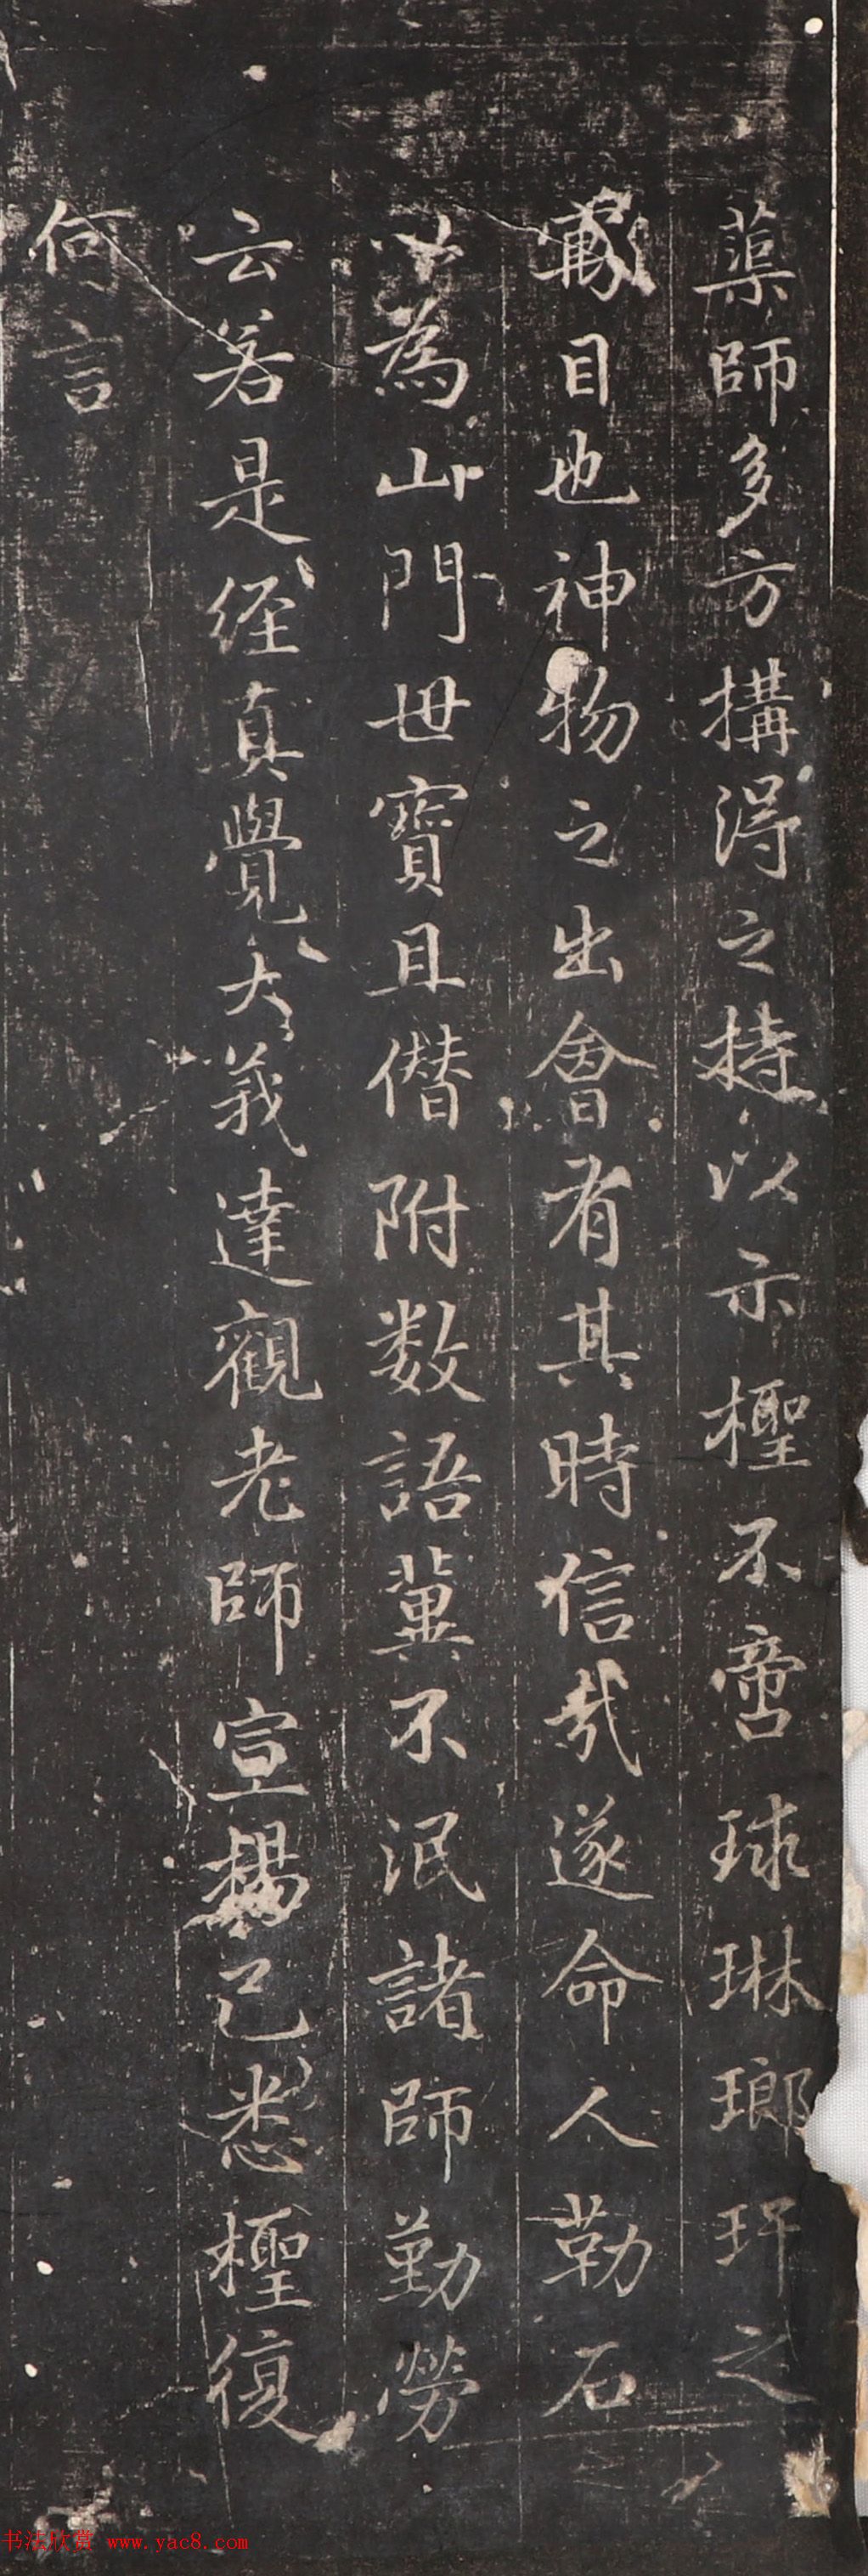 蕖師多方搆淂之持以示檉不啻球琳瑯玕之
寓目也神物之出會有其時信哉遂命人勒石
以為山門世寶且僭附数語冀不泯諸師勤勞
云若是经真覺大義達觀老師宣揚已悉檉復
何言
书法欣赏 www.yac8.com